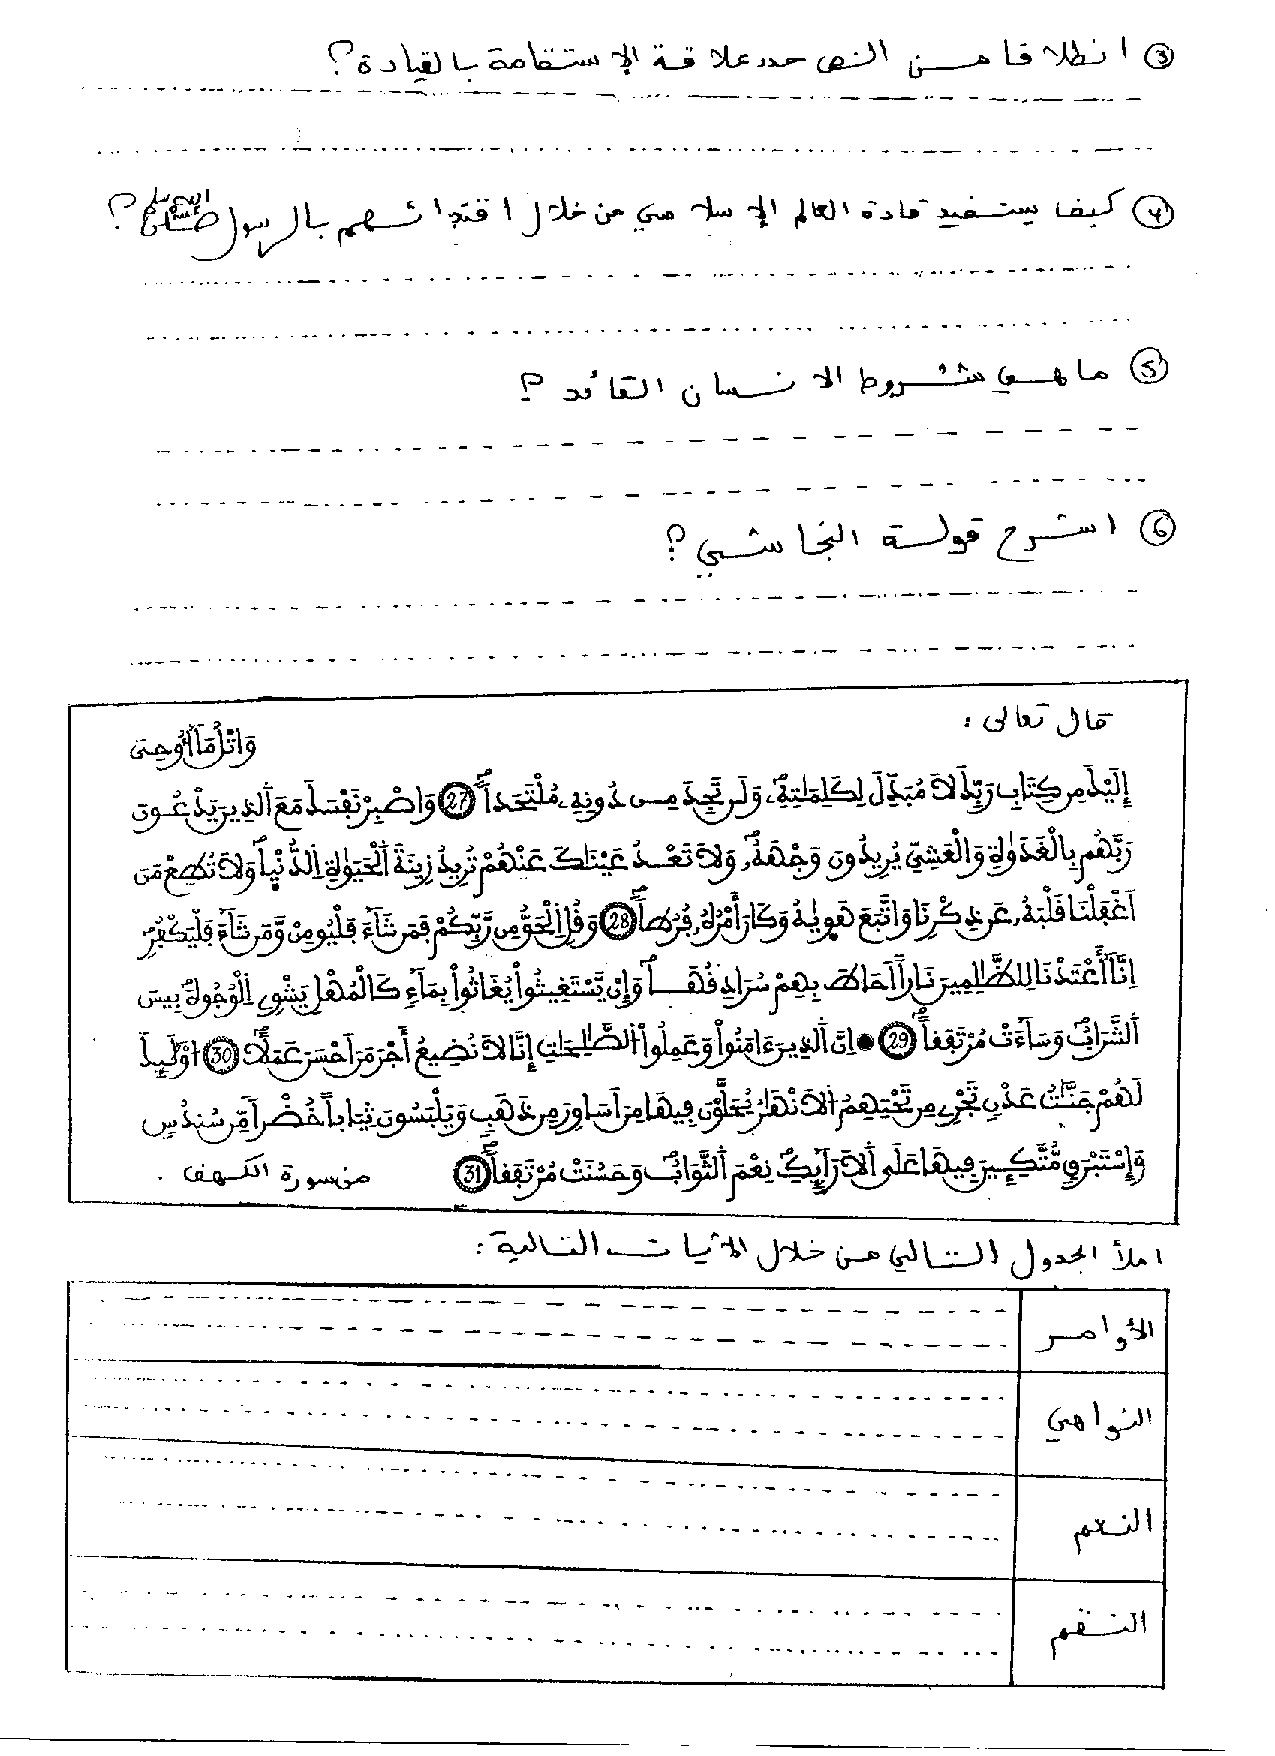 ③ انطلاقا من النص حدد علاقة الإستقامة بالقيادة؟
④ كيف يستفيد قادة العالم الإسلامي من خلال اقتدائهم بالرسول ﷺ؟
⑤ ما هي شروط الانسان القائد؟
⑥ اشرح قولة النجاشي؟
قال تعالى:
وَاتْلُ مَآ أُوحِيَ
إِلَيْكَ مِن كِتَابِ رَبِّكَ لَا مُبَدِّلَ لِكَلِمَٰتِهِۦ وَلَن تَجِدَ مِن دُونِهِۦ مُلْتَحَداً ㉗ وَاصْبِرْ نَفْسَكَ مَعَ ٱلذِينَ يَدْعُونَ
رَبَّهُم بِالْغَدَوٰةِ وَالْعَشِيِّ يُرِيدُونَ وَجْهَهُۥ وَلَا تَعْدُ عَيْنَاكَ عَنْهُمْ تُرِيدُ زِينَةَ ٱلْحَيَوٰةِ ٱلدُّنْيَا وَلَا تُطِعْ مَنَ
اَغْفَلْنَا قَلْبَهُۥ عَن ذِكْرِنَا وَاتَّبَعَ هَوَيٰهُ وَكَانَ أَمْرُهُۥ فُرُطاً ㉘ وَقُلِ ٱلْحَقُّ مِن رَّبِّكُمْ فَمَن شَآءَ فَلْيُومِن وَّمَن شَآءَ فَلْيَكْفُرِ
اِنَّآ أَعْتَدْنَا لِلظَّٰلِمِينَ نَاراً اَحَاطَ بِهِمْ سُرَادِقُهَا وَإِنْ يَّسْتَغِيثُواْ يُغَاثُواْ بِمَآءٍ كَالْمُهْلِ يَشْوِي ٱلْوُجُوهَ بِيسَ
ٱلشَّرَابُ وَسَآءَتْ مُرْتَفَقاً ㉙ اِنَّ ٱلذِينَ ءَامَنُواْ وَعَمِلُواْ ٱلصَّٰلِحَٰتِ إِنَّا لَا نُضِيعُ أَجْرَ مَنَ اَحْسَنَ عَمَلاً ㉚ اوْلَٰٓئِكَ
لَهُمْ جَنَّٰتُ عَدْنٍ تَجْرِي مِن تَحْتِهِمُ ٱلَانْهَٰرُ يُحَلَّوْنَ فِيهَا مِنَ اَسَاوِرَ مِن ذَهَبٍ وَيَلْبَسُونَ ثِيَاباً خُضْراً مِّن سُندُسٍ
وَإِسْتَبْرَقٍ مُّتَّكِـِٕينَ فِيهَا عَلَى ٱلَارَآئِكِ نِعْمَ ٱلثَّوَابُ وَحَسُنَتْ مُرْتَفَقاً ㉛ من سورة الكهف .
املأ الجدول التالي من خلال الآيات التالية:
الأوامر
النواهي
النعم
النقم